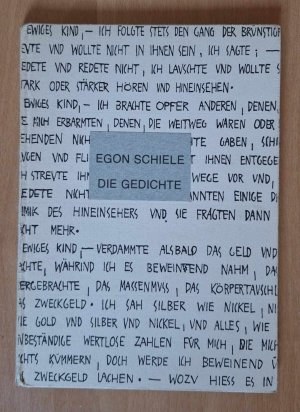 EWIGES KIND,– ICH FOLGTE STETS DEN GANG DER BRÜNSTIGE
EVTE UND WOLLTE NICHT IN IHNEN SEIN, ICH SAGTE; –
EDETE UND REDETE NICHT, ICH LAUSCHTE UND WOLLTE S
TARK ODER STÄRKER HÖREN UND HINEINSEHEN.
EWIGES KIND,– ICH BRACHTE OPFER ANDEREN, DENEN,
E MICH ERBARMTEN, DENEN, DIE WEITWEG WAREN ODER
EHENDEN NICH TE GABEN, SCH
NGEN UND FLI T IHNEN ENTGEGE
H STREVTE IHN WEGE VOR UND,
EDETE NICHT NNTEN EINIGE D
IMIK DES HINEINSEHERS UND SIE FRÄGTEN DANN
CHT MEHR.
EWIGES KIND,– VERDAMMTE ALSBALD DAS GELD UND
ACHTE, WÄHRIND ICH ES BEWEINTEND NAHM, DA
ERGEBRACHTE, DAS MASSENMUSS, DAS KÖRPERTAUSCHL
AS ZWECKGELD. ICH SAH SILBER WIE NICKEL, NI
IE GOLD UND SILBER UND NICKEL, UND ALLES, WIE
NBESTÄNDIGE WERTLOSE ZAHLEN FÜR MICH, DIE MIC
CHTS KÜMMERN, DOCH WERDE ICH BEWEINEND Ü
S ZWECKGELD LACHEN. – WOZU HIESS ES IN
EGON SCHIELE
DIE GEDICHTE